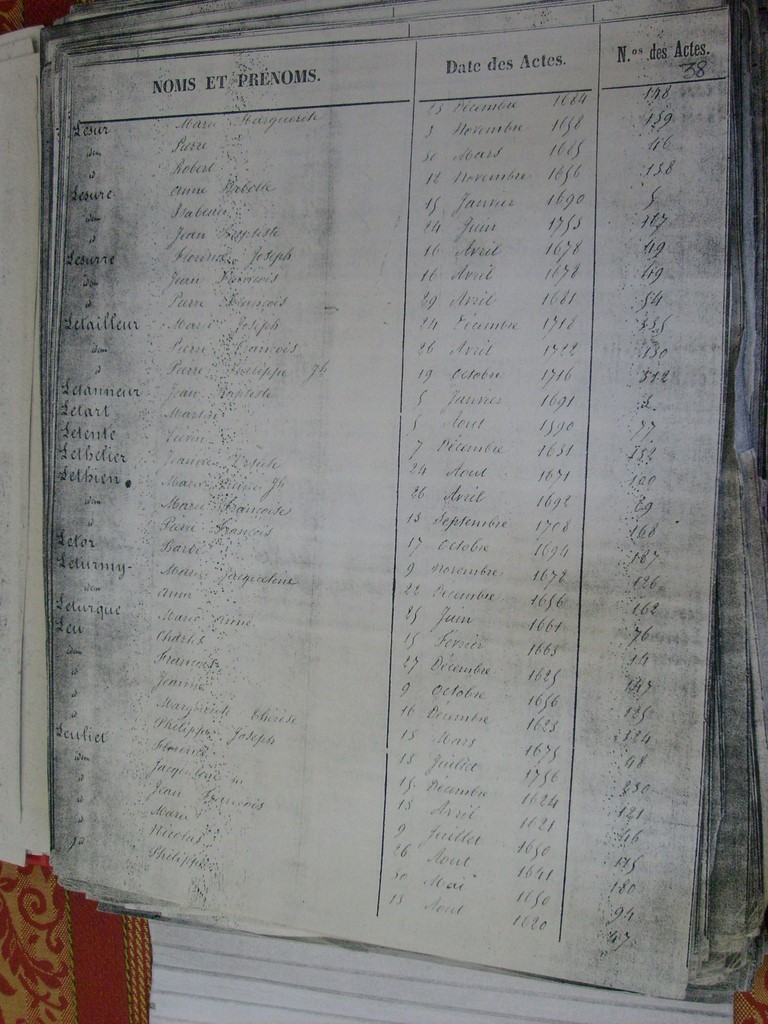 NOMS ET PRÉNOMS. Date des Actes. N.os des Actes.
38
Lesur Marie Marguerite 23 Décembre 1684 148
idem Pierre 3 Novembre 1658 139
id Robert 30 Mars 1685 46
Lesure Anne Isbelle 12 Novembre 1656 138
idem Isabeau 15 Janvier 1690 5
id Jean Baptiste 24 Juin 1753 117
Lesurre Florence Joseph 16 Avril 1678 49
idem Jean François 16 Avril 1678 49
id Pierre François 29 Avril 1681 54
Letailleur Marie Joseph 24 Décembre 1718 335
idem Pierre François 26 Avril 1722 130
id Pierre Philippe Jh 19 Octobre 1716 312
Letanneur Jean Baptiste 5 Janvier 1691 2
Letart Martin 5 Aout 1590 77
Letente 7 Décembre 1651 152
Lethelier Jeanne Ursule 24 Aout 1671 100
Lethien Marie Jh 26 Avril 1692 69
idem Marie Françoise 13 Septembre 1708 168
id Pierre François 17 Octobre 1694 187
Letor Barbe 9 Novembre 1672 126
Leturmy Marie Jacqueline 22 Décembre 1656 162
idem Ann 25 Juin 1661 76
Leturque Marie Anne 15 Février 1665 14
Leu Charles 27 Décembre 1625 147
idem François 9 Octobre 1656 125
id Jeanne 16 Décembre 1623 124
id Marguerite Thérèse 15 Mars 1675 48
id Philippe Joseph 13 Juillet 1756 230
Leuliet Florence 15 Décembre 1624 121
idem Jacqueline 13 Avril 1621 46
id Jean François 9 Juillet 1650 115
id Marie 26 Aout 1641 120
id Nicolas 30 Mai 1650 94
id Philippe 13 Aout 1620 47